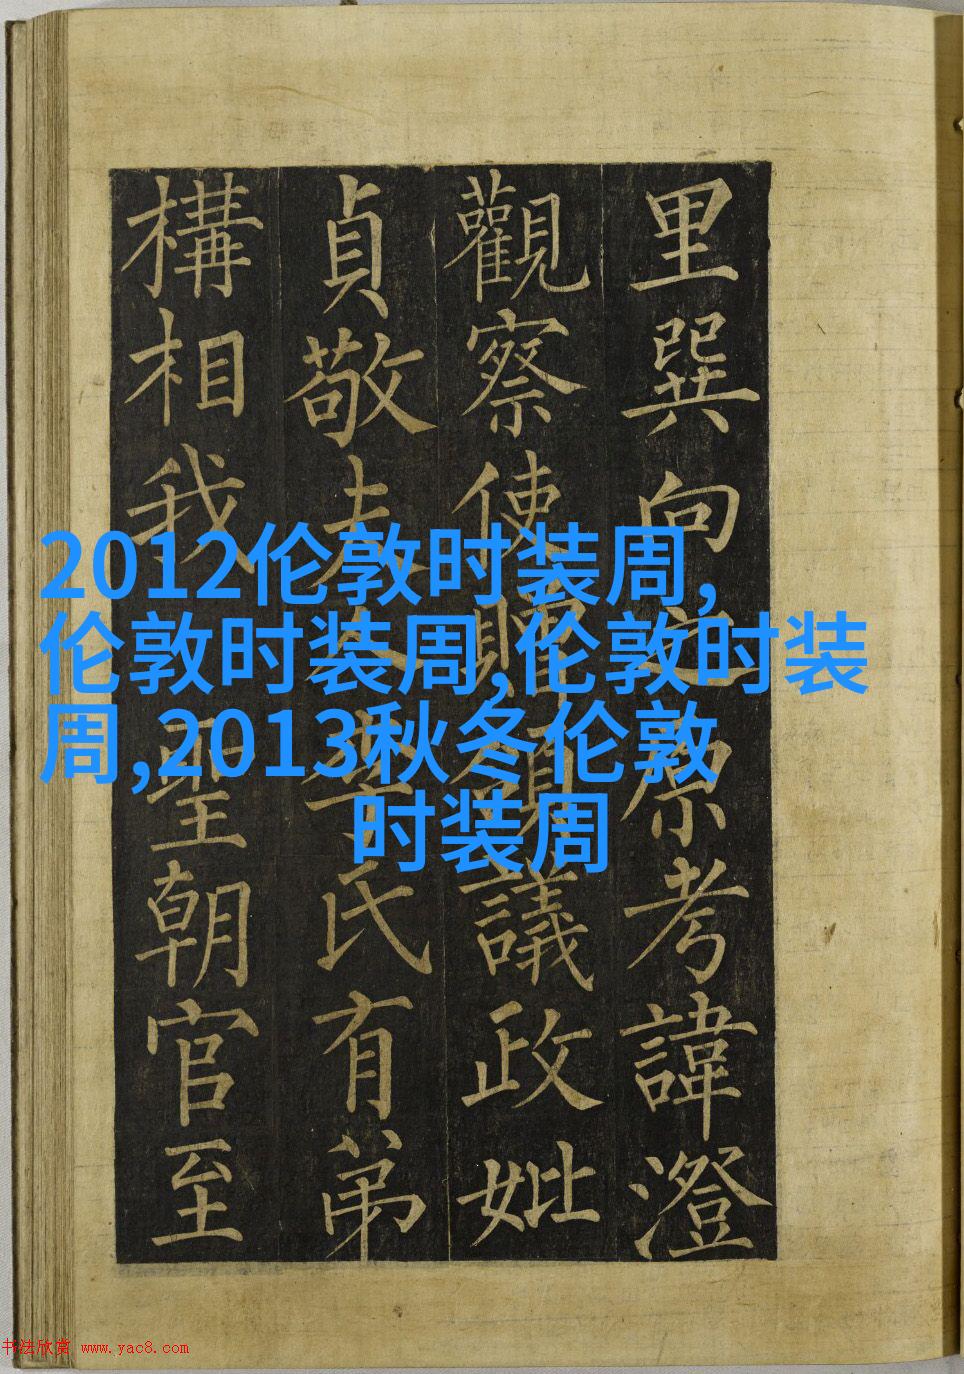 里巽向之原考諱澄
觀察使贈領議政妣
貞敬夫人李氏有弟
構相我聖朝官至
2012伦敦时装周,
伦敦时装周,伦敦时装
周,2013秋冬伦敦
时装周
书法欣赏 www.yac8.com